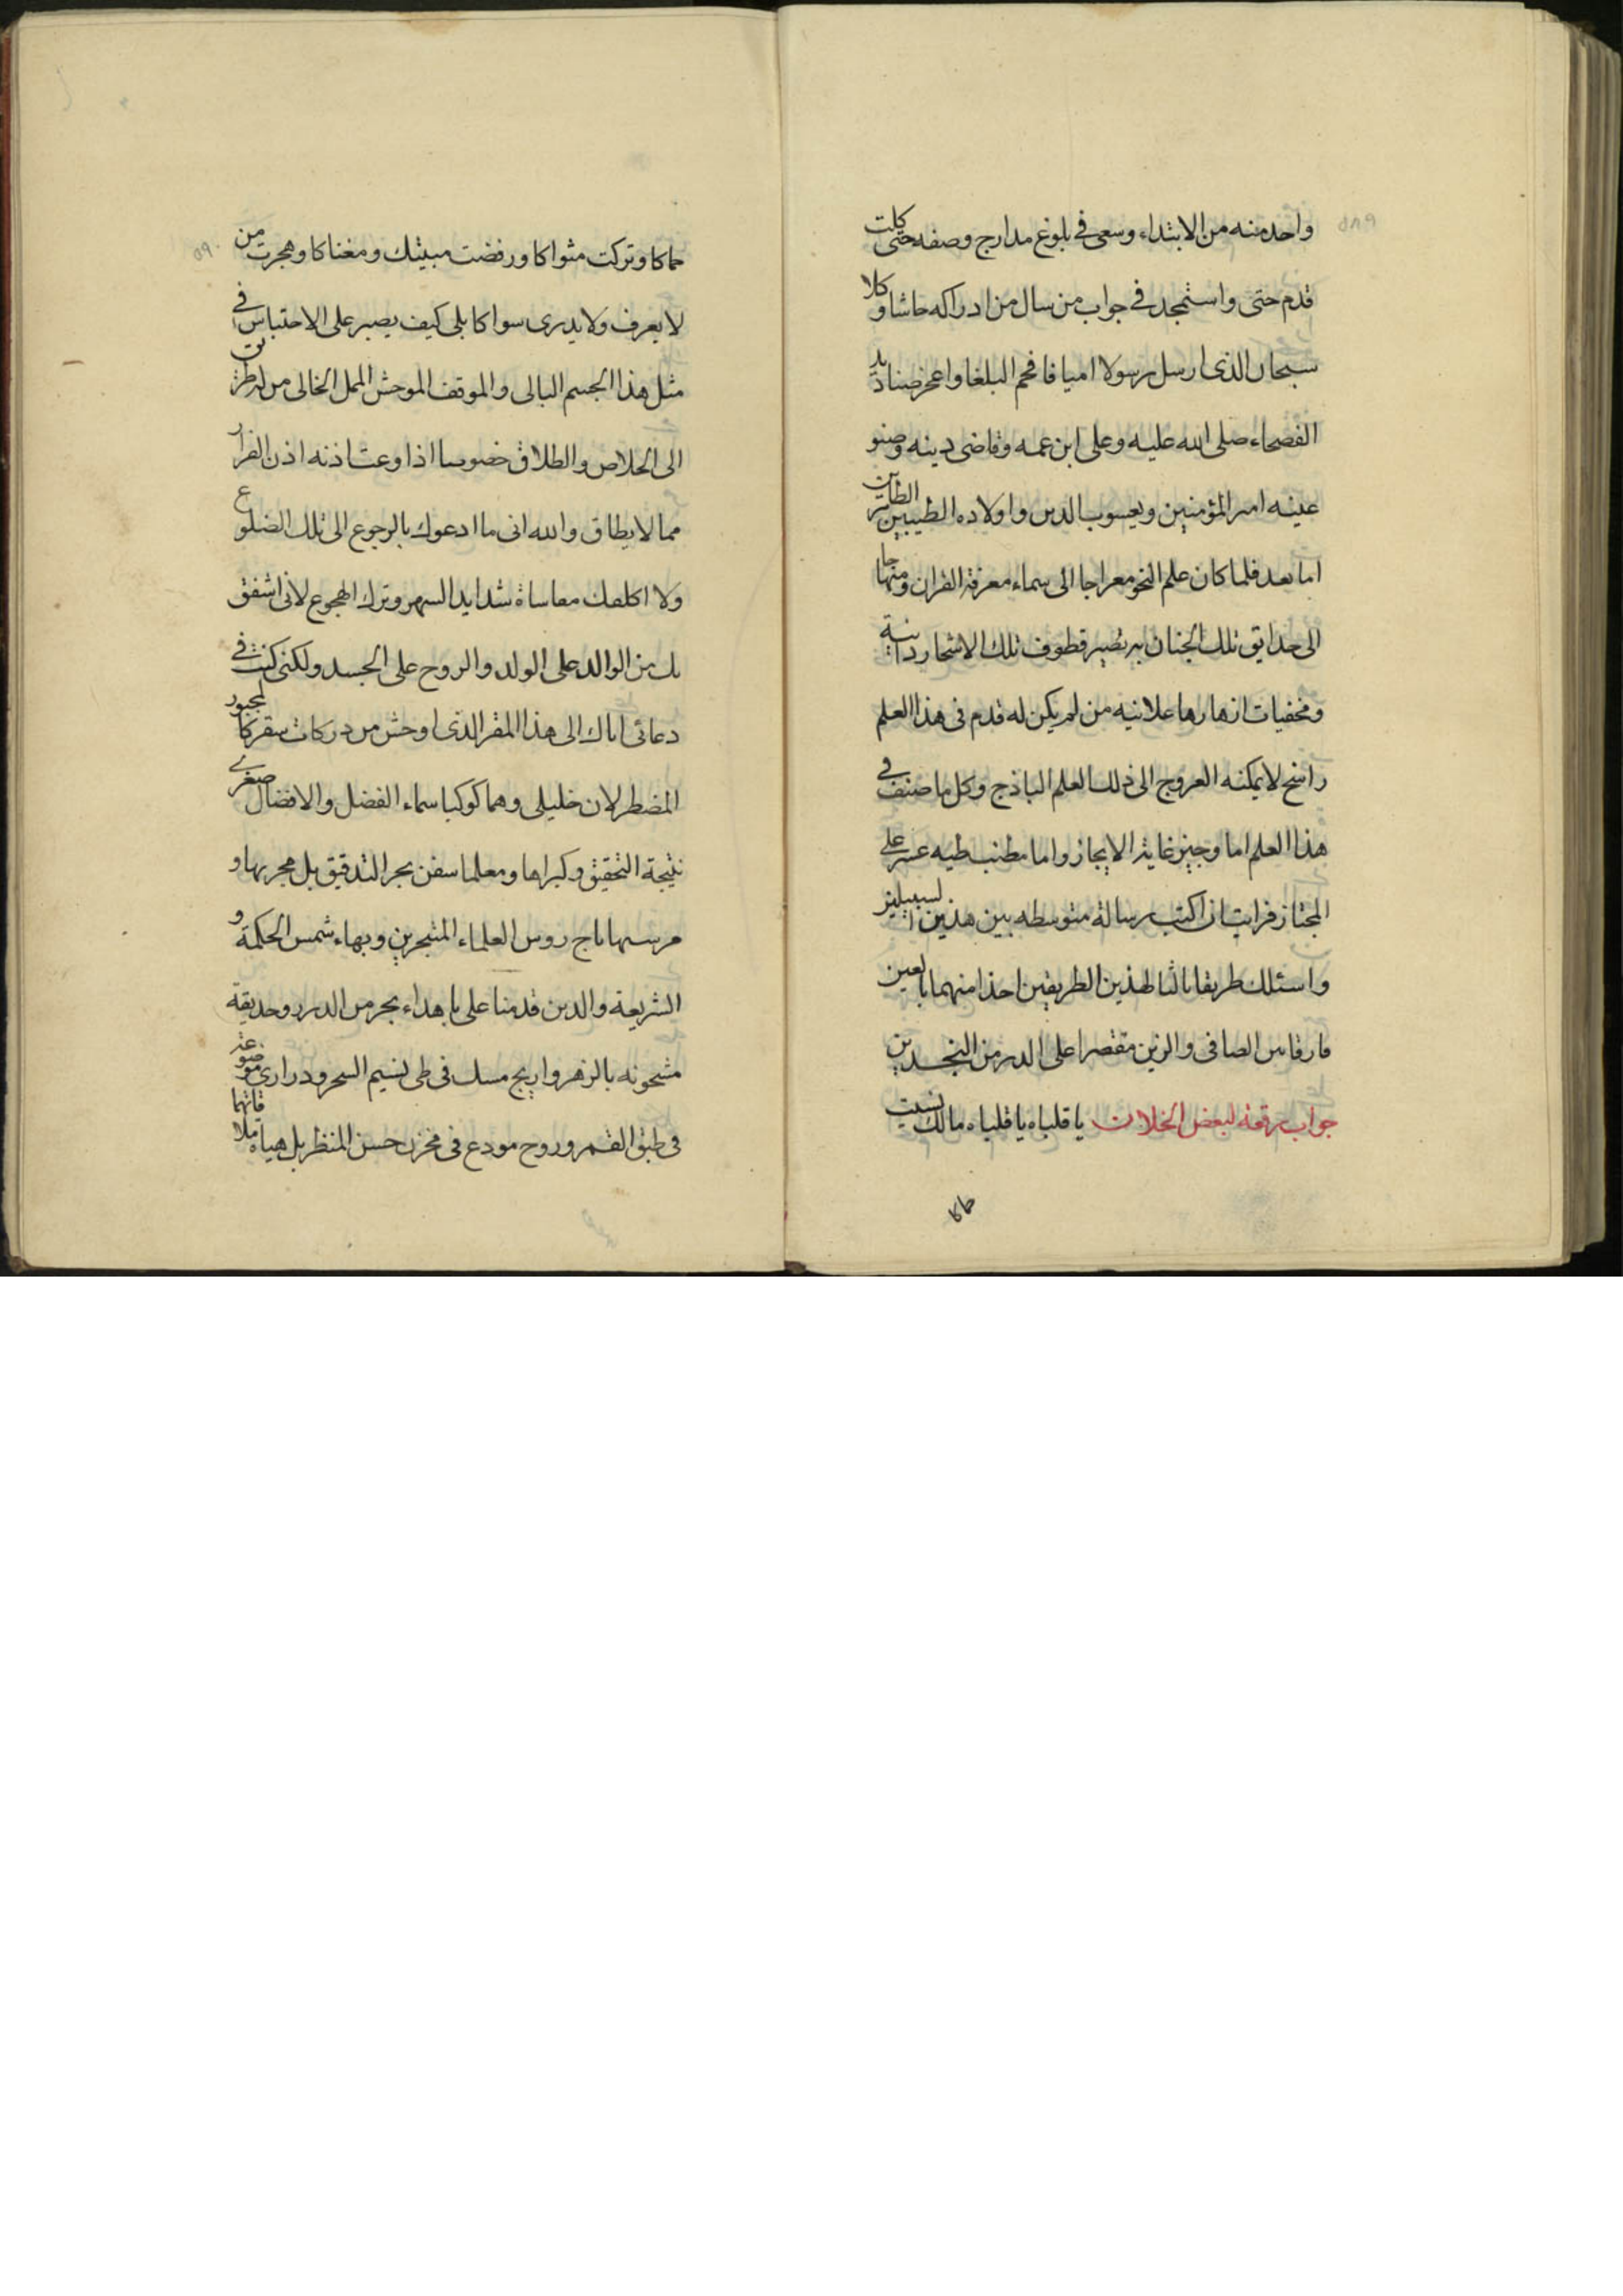 ٥٨٩
واحد منه من الابتداء وسعى فى بلوغ مدارج وصفه حتى كلت
قدم حتى واستمجد فى جواب من سال من ادراكه حاشا وكلا
سبحان الذى ارسل رسولا اميا فافحم البلغا واعجز صناديد
الفصحاء صلى الله عليه وعلى ابن عمه وقاضى دينه وصنو
عينه امير المؤمنين ويعسوب الدين واولاده الطيبين
اما بعد فلما كان علم النحو معراجا الى سماء معرفة القران ومنهاجا
الى حدايق تلك الجنان به تصير قطوف تلك الاشجار دانية
ومخفيات ازهارها علانيه من لم يكن له قدم فى هذا العلم
راسخ لا يمكنه العروج الى ذلك العلم الباذج وكل ما صنف فى
هذا العلم اما وجيز غاية الايجاز واما مطنب طيه عسر على
المجتاز فرايت ان اكتب رسالة متوسطه بين هذين السبيلين
واسئلك طريقا ثالثا لهذين الطريقين اخذا منهما بالعين
فارقا بين الصافى والرنين مقتصرا على الدر من النجدين
جواب رقعة لبعض الخلان يا قلباه يا قلباه مالك نسيت
حماكا
٥٩٠
حماكا وتركت مثواكا ورفضت مبيتك ومغناكا وهجرت من
لا يعرف ولا يدرى سواكا بلى كيف يصبر على الاحتباس فى
مثل هذا الجسم البالى والموقف الموحش الممل الخالى من له طريق
الى الخلاص والطلاق خصوصا اذا وعت اذنه اذن الفرار
مما لا يطاق والله انى ما ادعوك بالرجوع الى تلك الضلوع
ولا اكلفك مقاساة شدايد السهر وترك الهجوع لانى اشفق
بك من الوالد على الولد والروح على الجسد ولكنى كنت فى
دعائى اياك الى هذا المقر الذى اوحش من دركات سقر كالمجبور
المضطر لان خليلى وهما كوكبا سماء الفضل والافضال صغرى
نتيجة التحقيق وكبراها ومعلما سفن بحر التدقيق بل مجريها و
مرسيها تاج روس العلماء المتبحرين وبهاء شمس الحكمة و
الشريعة والدين قدمنا على باهداء بحر من الدرر وحديقة
مشحونه بالزهر واريج مسك فى طى نسيم السحر ودرارى موضوعة
فى طبق القمر وروح مودع فى مخزن حسن المنظر بل هياه ملاقاتهما